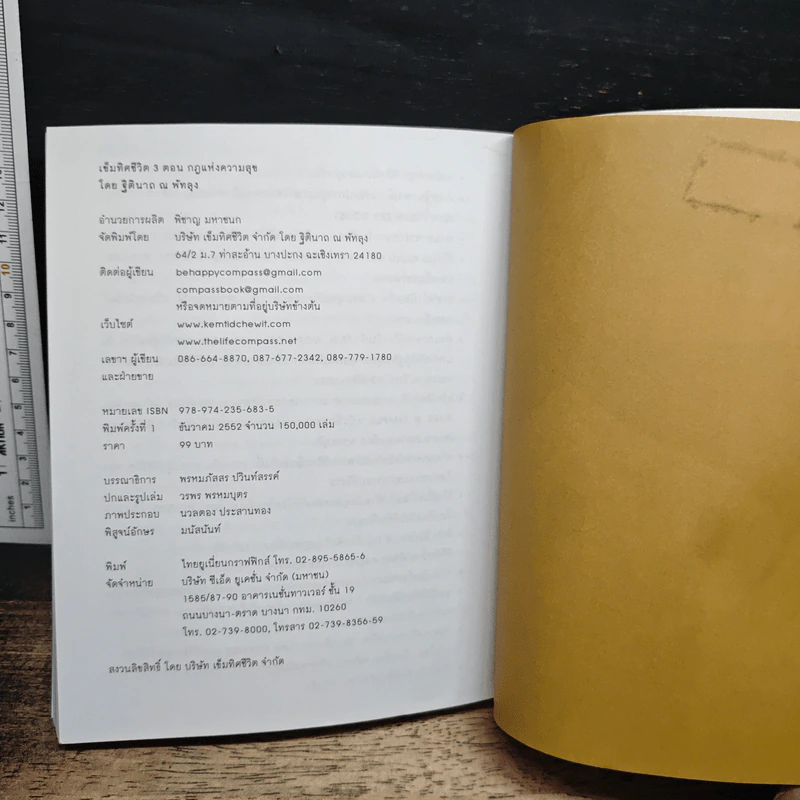 เข็มทิศชีวิต 3 ตอน กฎแห่งความสุข
โดย ฐิตินาถ ณ พัทลุง
อำนวยการผลิต พิชาญ มหาชนก
จัดพิมพ์โดย บริษัท เข็มทิศชีวิต จำกัด โดย ฐิตินาถ ณ พัทลุง
64/2 ม.7 ท่าสะอ้าน บางปะกง ฉะเชิงเทรา 24180
ติดต่อผู้เขียน behappycompass@gmail.com
compassbook@gmail.com
หรือจดหมายตามที่อยู่บริษัทข้างต้น
เว็บไซต์ www.kemtidchewit.com
www.thelifecompass.net
เลขาฯ ผู้เขียน 086-664-8870, 087-677-2342, 089-779-1780
และฝ่ายขาย
หมายเลข ISBN 978-974-235-683-5
พิมพ์ครั้งที่ 1 ธันวาคม 2552 จำนวน 150,000 เล่ม
ราคา 99 บาท
บรรณาธิการ พรหมภัสสร ปวินท์สรรค์
ปกและรูปเล่ม วรพร พรหมบุตร
ภาพประกอบ นวลตอง ประสานทอง
พิสูจน์อักษร มนัสนันท์
พิมพ์ ไทยยูเนี่ยนกราฟฟิกส์ โทร. 02-895-5865-6
จัดจำหน่าย บริษัท ซีเอ็ด ยูเคชั่น จำกัด (มหาชน)
1585/87-90 อาคารเนชั่นทาวเวอร์ ชั้น 19
ถนนบางนา-ตราด บางนา กทม. 10260
โทร. 02-739-8000, โทรสาร 02-739-8356-59
สงวนลิขสิทธิ์ โดย บริษัท เข็มทิศชีวิต จำกัด
inches